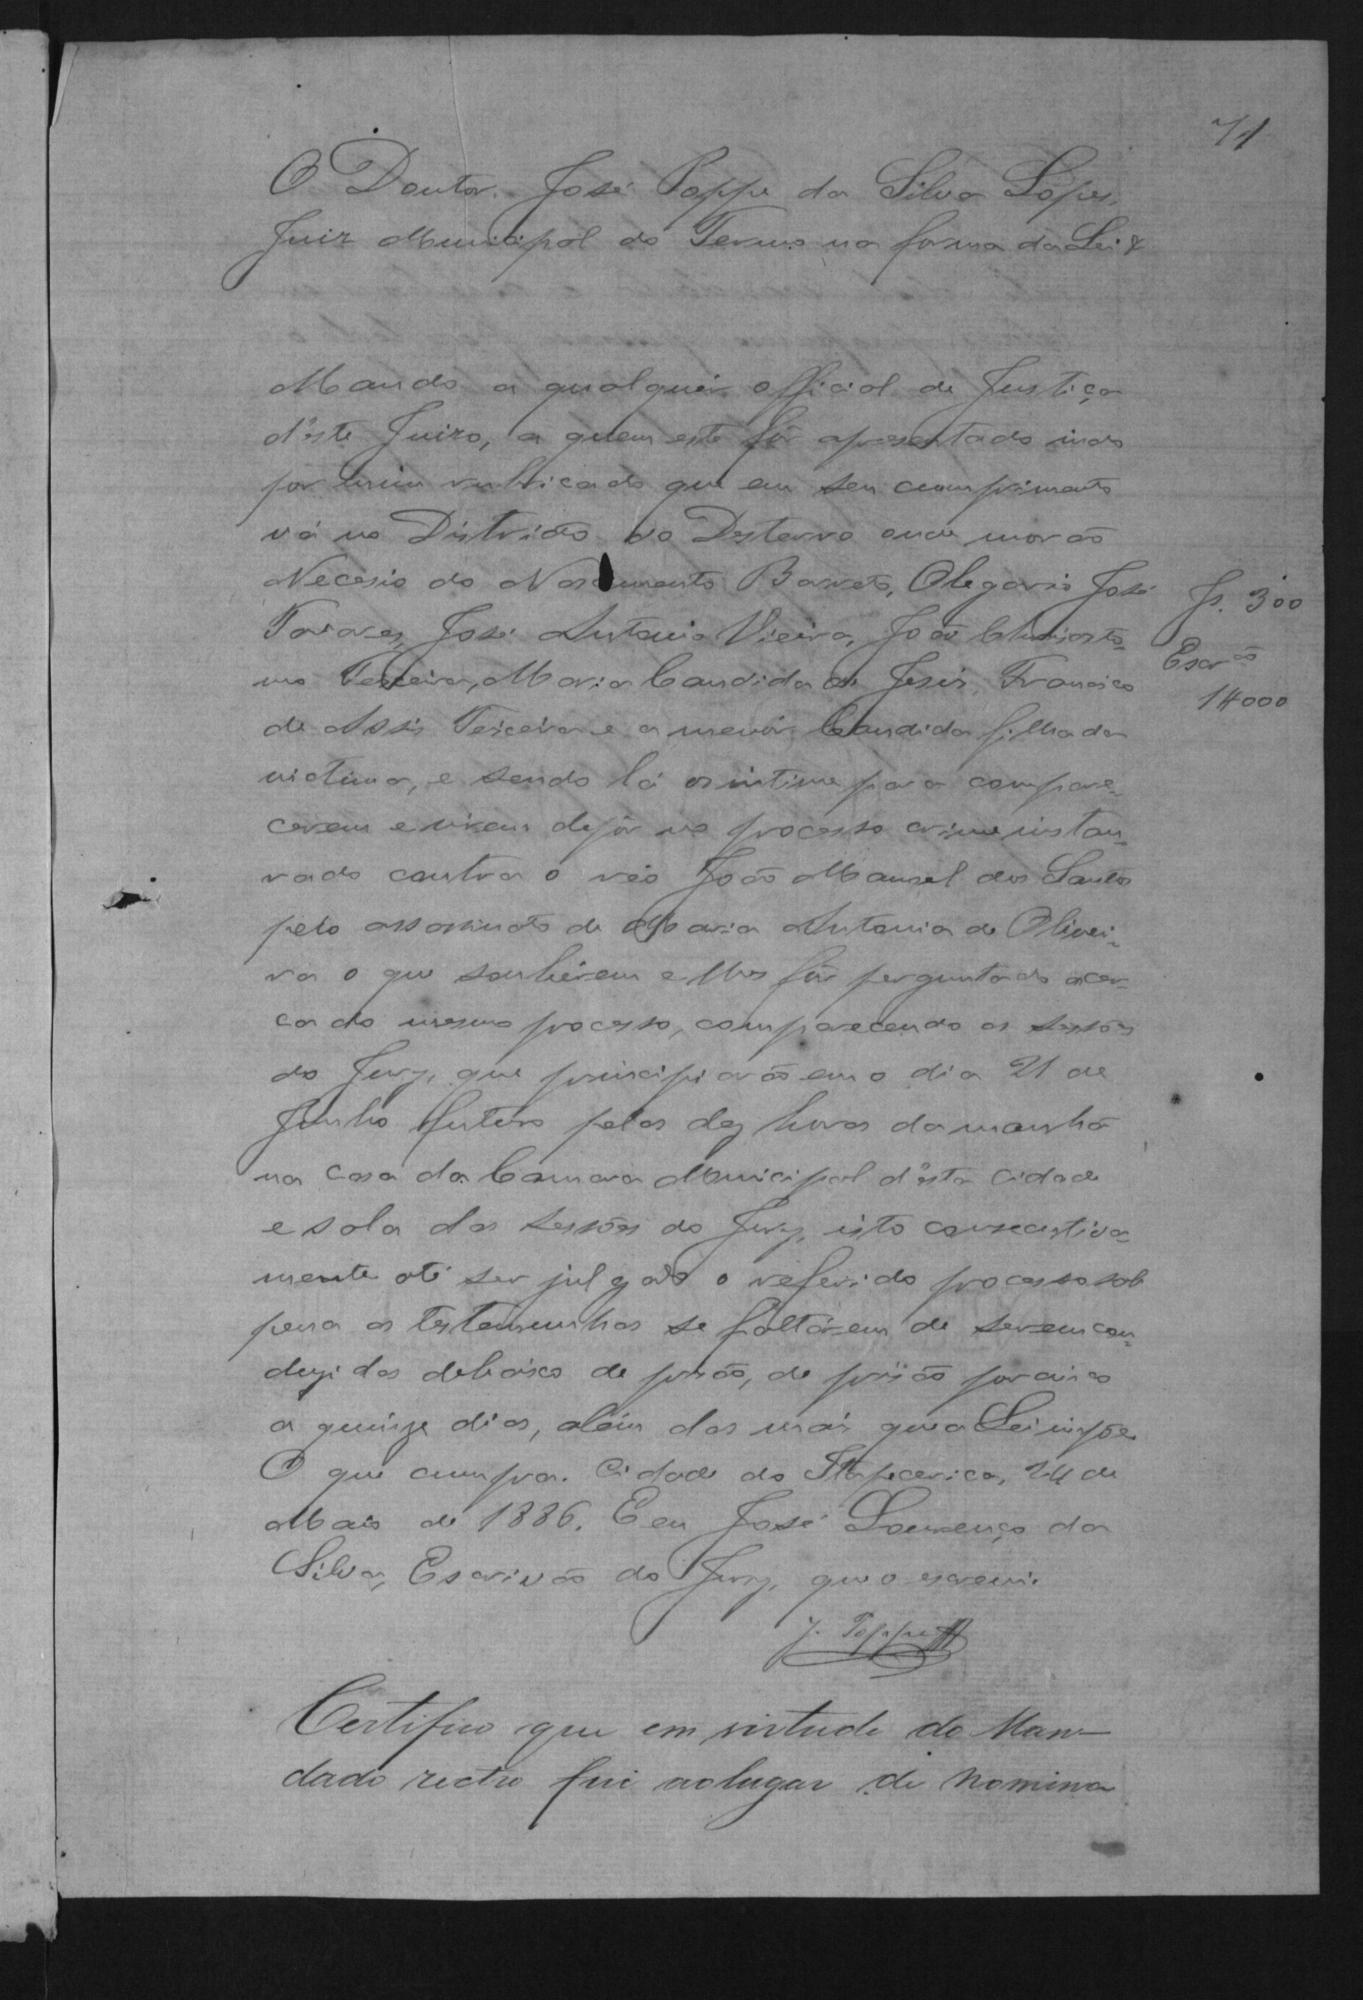 71
O Doutor José Poppe da Silva Lopes,
Juiz Municipal do Termo na forma da Lei &
Mando a qualquer official de Justiça
d'este Juizo, a quem este fôr apresentado indo
por mim rubricado que em seu cumprimento
vá no Districto do Desterro onde morão
Necesio do Nascimento Barreto, Olegario José
Tavares, José Antonio Vieira, João Chrisosto-
mo Teixeira, Maria Candida de Jesus, Francisco
de Assis Teixeira e a menor Candida filha da
victima, e sendo lá os intime para compare-
cerem e virem depôr no processo crime instau-
rado contra o réo João Manoel dos Santos
pelo assassinato de Maria Antonia de Olivei-
ra o que souberem e lhes fôr perguntado acer-
ca do mesmo processo, comparecendo as sessões
do Jury, que principiarão em o dia 21 de
Junho futuro pelas dez horas da manhã
na casa da Camara Municipal d'esta Cidade
e sala das sessões do Jury, isto consecutiva-
mente até ser julgado o referido processo sob
pena as testemunhas se faltárem de serem con-
duzidas debaixo de prisão, de prisão por cinco
a quinze dias, além das mais que a Lei impõe
O que cumpra. Cidade de Itapecerica, 24 de
Maio de 1886. E eu José Lourenço da
Silva, Escrivão do Jury, que o escrevi.
J. Poppe
Certifico que em virtude do Man-
dado rectro fui ao lugar de nomina
Js. 300
Escr.ão
1#000